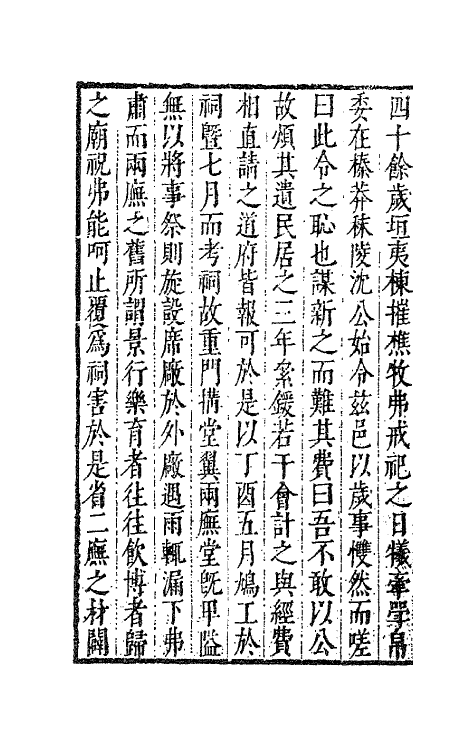 四十餘歲垣夷棟摧樵牧弗戒祀之日犧牽學帛
委在榛莽秣陵沈公始令茲邑以歲事戄然而嗟
曰此令之恥也謀新之而難其費曰吾不敢以公
故煩其遺民居之三年絫鍰若干會計之與經費
相直請之道府皆報可於是以丁酉五月鳩工於
祠曁七月而考祠故重門搆堂翼兩廡堂旣卑隘
無以將事祭則旋設席廠於外廠遇雨輒漏下弗
肅而兩廡之舊所謂景行樂育者往往飮博者歸
之廟祝弗能呵止覆爲祠害於是省二廡之材闢